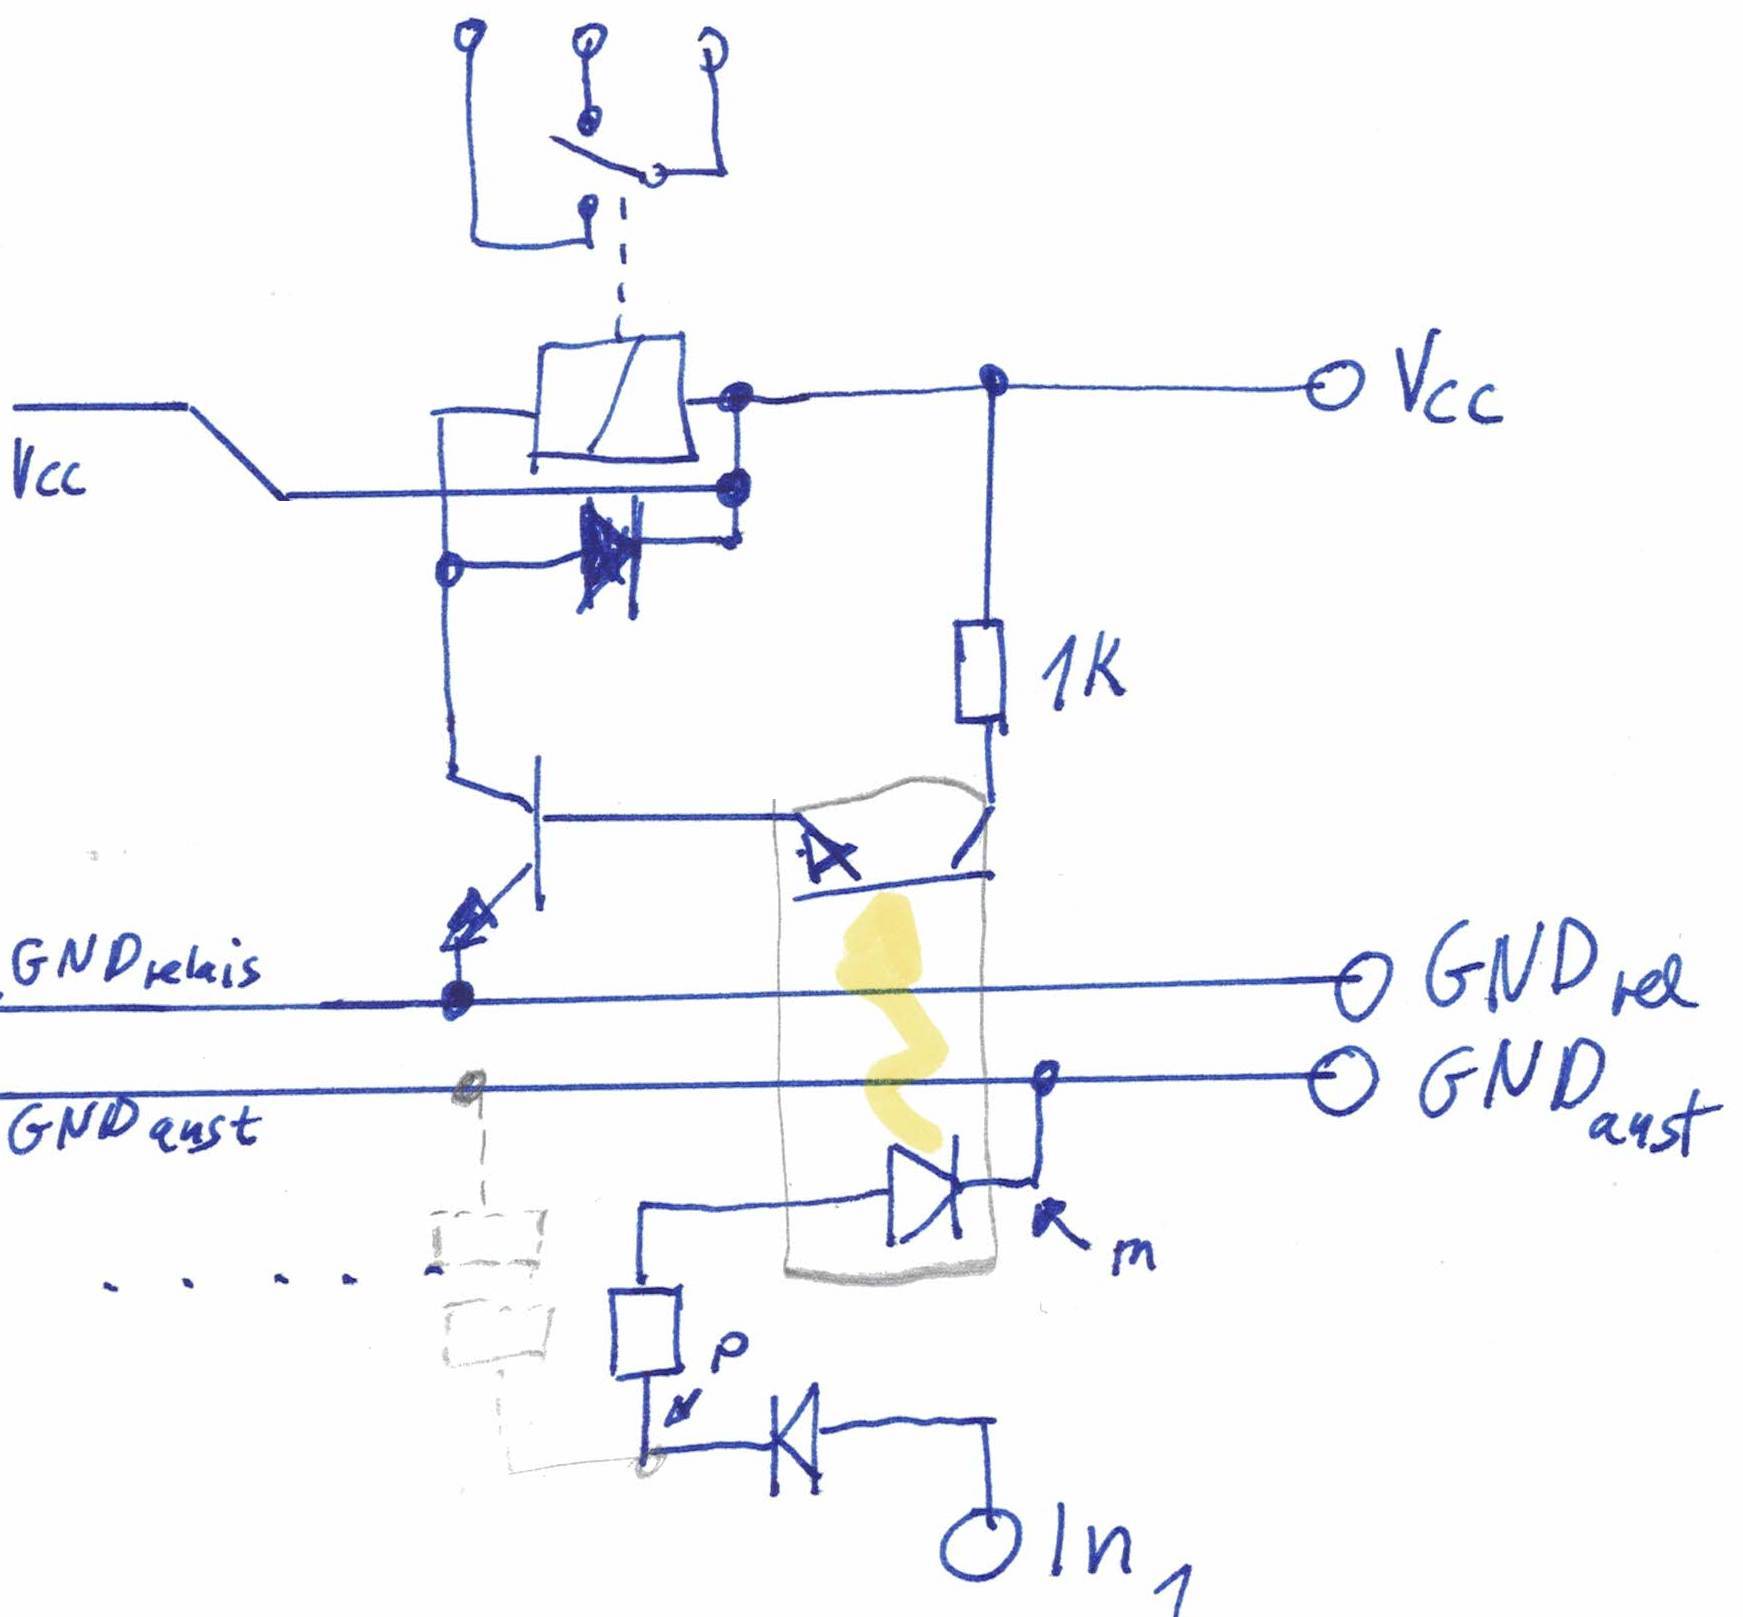 Vcc
Vcc
1K
GND relais
GND rel
GND anst
GND anst
m
P
In 1